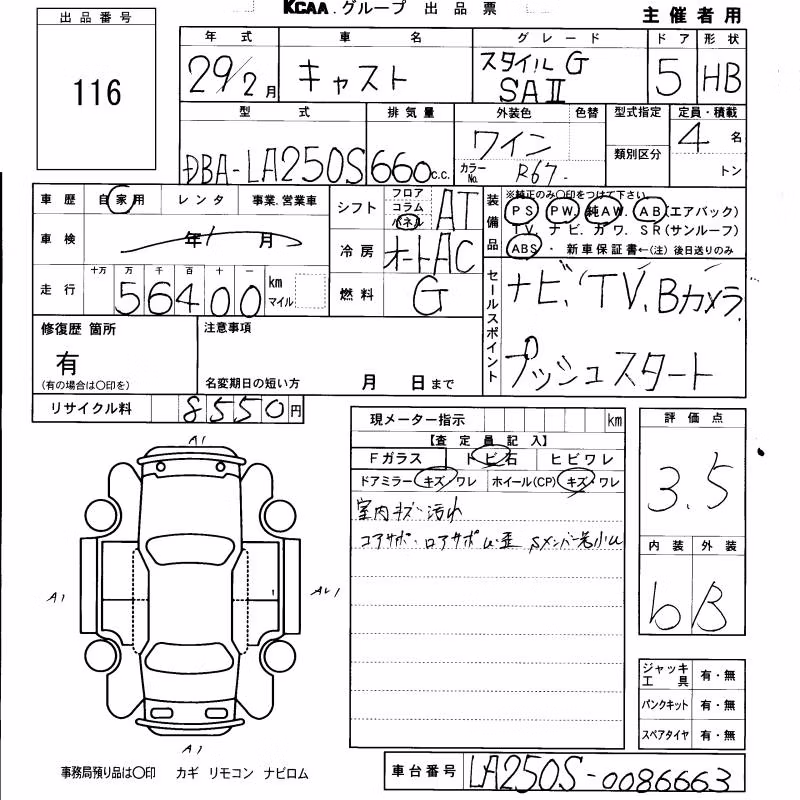 KCAA グループ 出品票
主催者用
出品番号
116
年式 車名 グレード ドア 形状
29/2月 キャスト スタイル G SAⅡ 5 HB
型式 排気量 外装色 色替 型式指定 定員・積載
DBA-LA250S 660c.c. ワイン 4名
カラーNo. R67. 類別区分 トン
車歴 自家用 レンタ 事業.営業車
シフト フロア コラム パネル AT
装備品 ※純正のみ〇印をつけて下さい。
PS PW. 純AW. AB(エアバック)
TV. ナビ. カワ. SR(サンルーフ)
ABS・新車保証書←(注)後日送りのみ
車検 年 月
冷房 オートAC
走行 十万 万 千 百 十 一 km マイル
56400
燃料 G
セールスポイント
ナビ、TV、Bカメラ
プッシュスタート
修復歴 箇所
有
(有の場合は〇印を)
注意事項
名変期日の短い方 月 日まで
リサイクル料 8550円
現メーター指示 km
【査定員記入】
Fガラス トビ石 ヒビワレ
ドアミラー キズ・ワレ ホイール(CP) キズ・ワレ
室内キズ・汚れ
コアサポ・ロアサポ
評価点
3.5
内装 外装
b B
A1
A1
A1
ジャッキ工具 有・無
パンクキット 有・無
スペアタイヤ 有・無
事務局預り品は〇印 カギ リモコン ナビロム
車台番号 LA250S-0086663